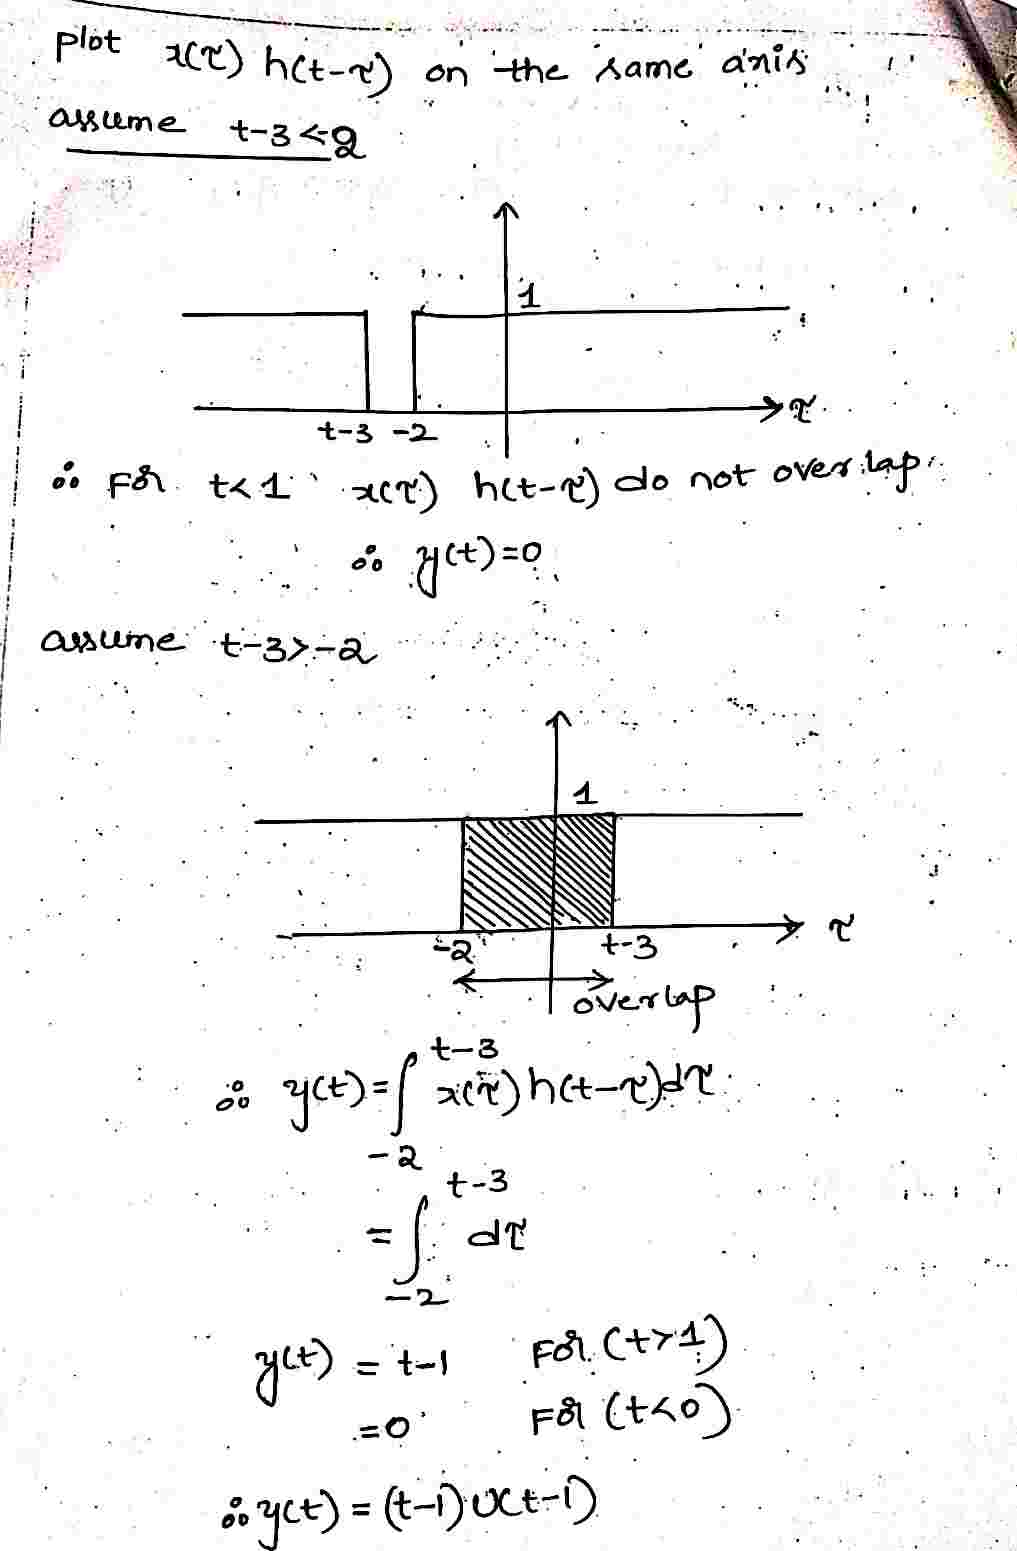 plot x(τ) h(t-τ) on the same axis
assume t-3<-2
1
τ
t-3 -2
∴ For t<1 x(τ) h(t-τ) do not overlap.
∴ y(t)=0
assume t-3>-2
1
τ
-2 t-3
overlap
∴ y(t)=∫_{-2}^{t-3} x(τ) h(t-τ)dτ
=∫_{-2}^{t-3} dτ
y(t) = t-1 For (t>1)
=0 For (t<0)
∴ y(t) = (t-1) u(t-1)